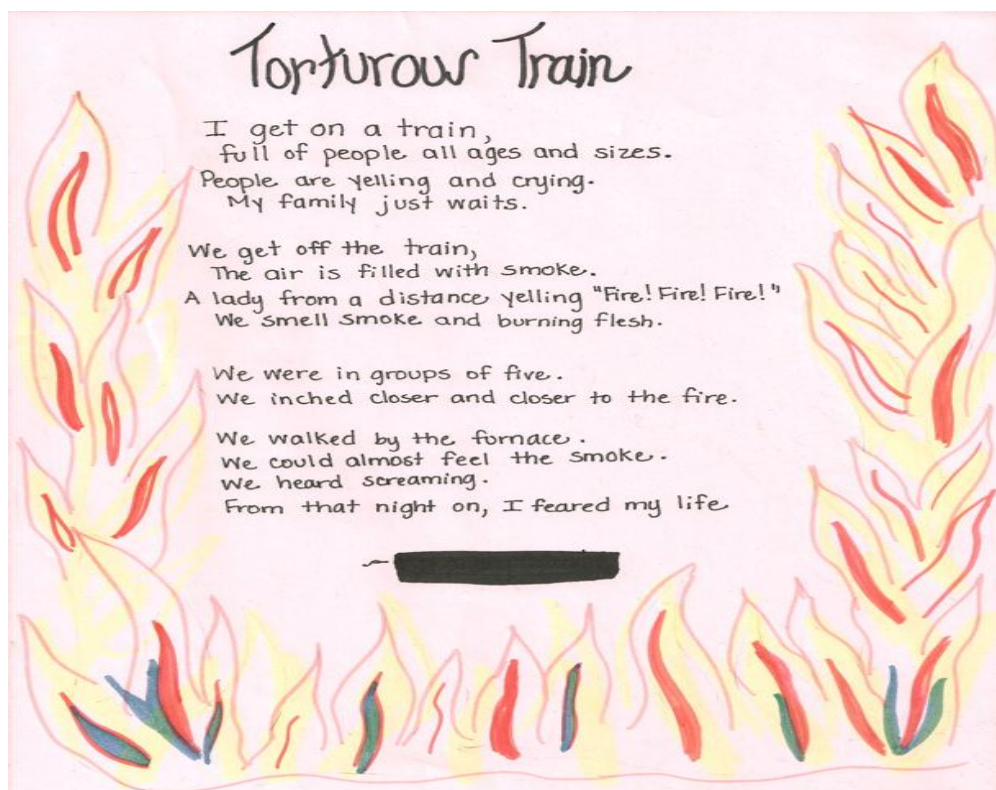 Torturous Train
I get on a train,
full of people all ages and sizes.
People are yelling and crying.
My family just waits.
We get off the train,
The air is filled with smoke.
A lady from a distance yelling "Fire! Fire! Fire!"
We smell smoke and burning flesh.
We were in groups of five.
We inched closer and closer to the fire.
We walked by the furnace.
We could almost feel the smoke.
We heard screaming.
From that night on, I feared my life